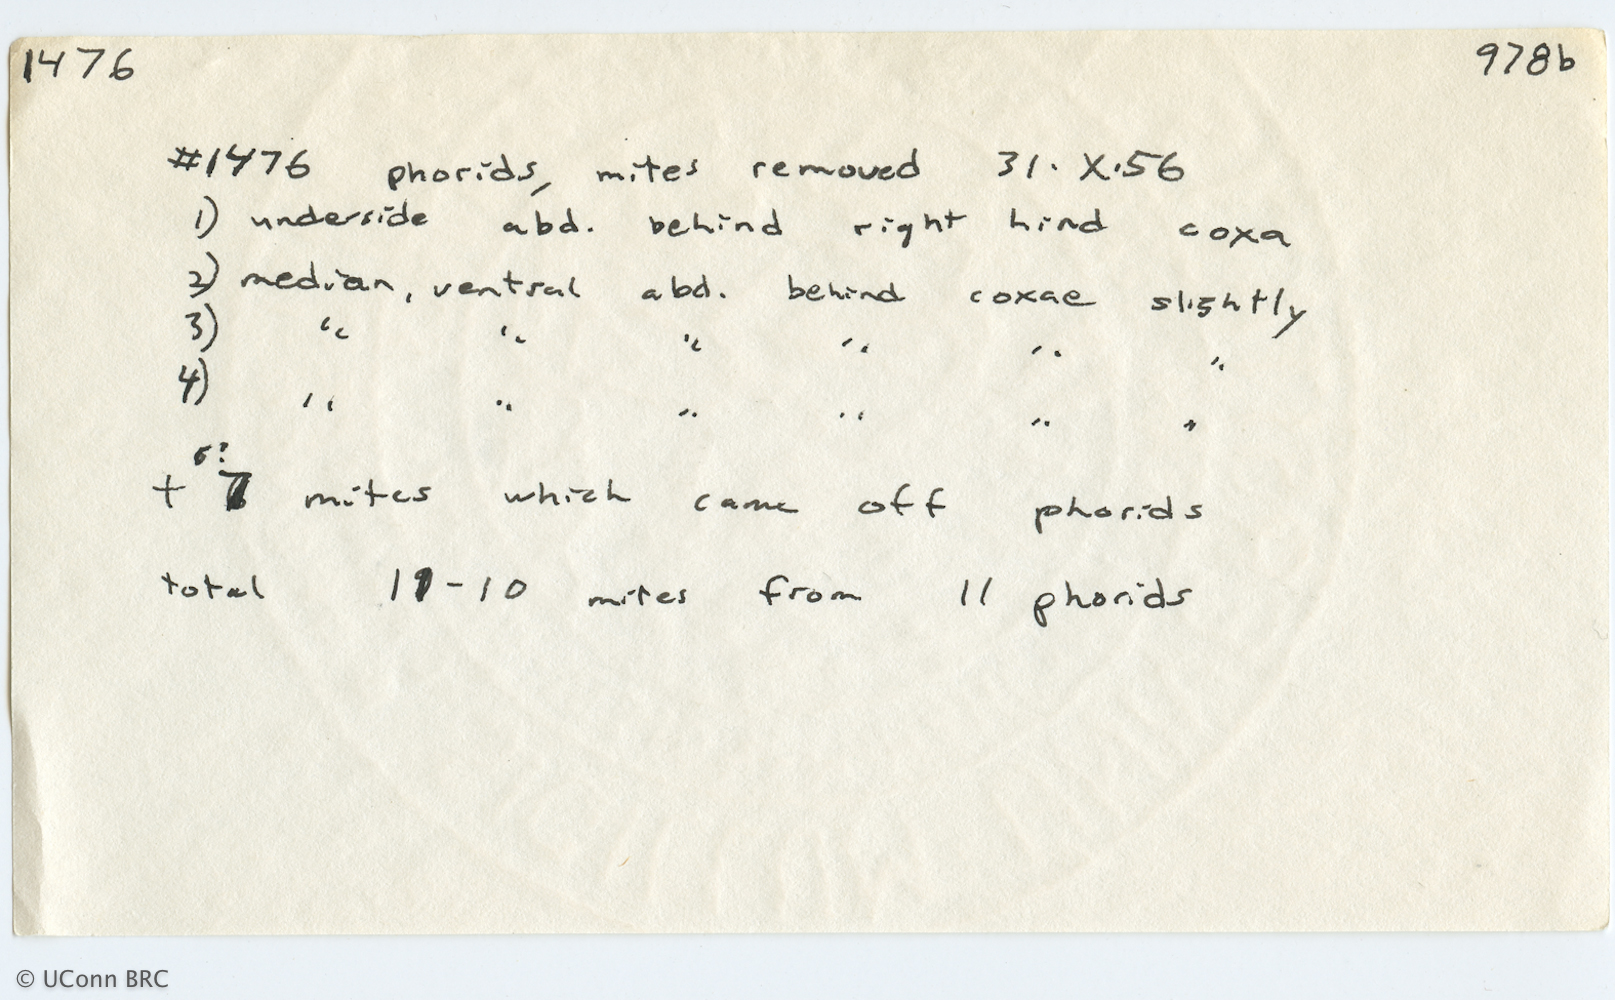 1476 978b
#1476 phorids, mites removed 31. X.56
1) underside abd. behind right hind coxa
2) median, ventral abd. behind coxae slightly
3) " " " " " "
4) " " " " " "
6?
+ 7 mites which came off phorids
total 11-10 mites from 11 phorids
© UConn BRC